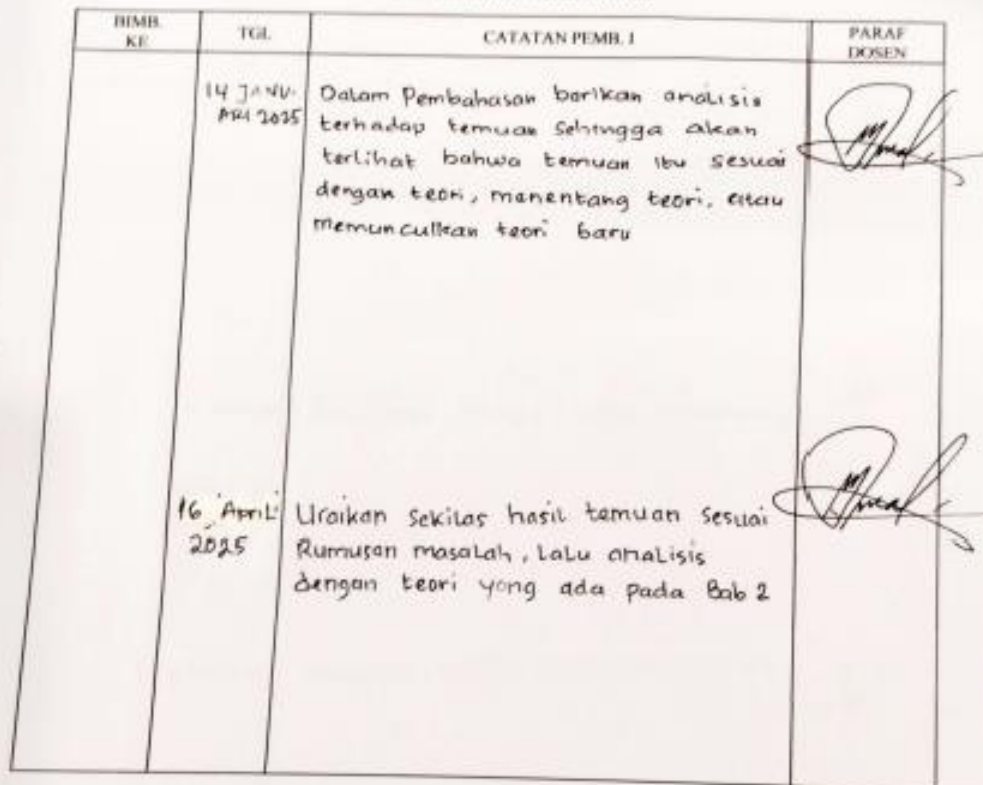 BIMB. KE
TGL.
CATATAN PEMB. I
PARAF DOSEN
14 JANU-
ARI 2025
Dalam Pembahasan berikan analisis
terhadap temuan Sehingga akan
terlihat bahwa temuan itu sesuai
dengan teori, menentang teori, atau
memunculkan teori baru
16 April
2025
Uraikan Sekilas hasil temuan Sesuai
Rumusan masalah, Lalu analisis
dengan teori yang ada pada Bab 2